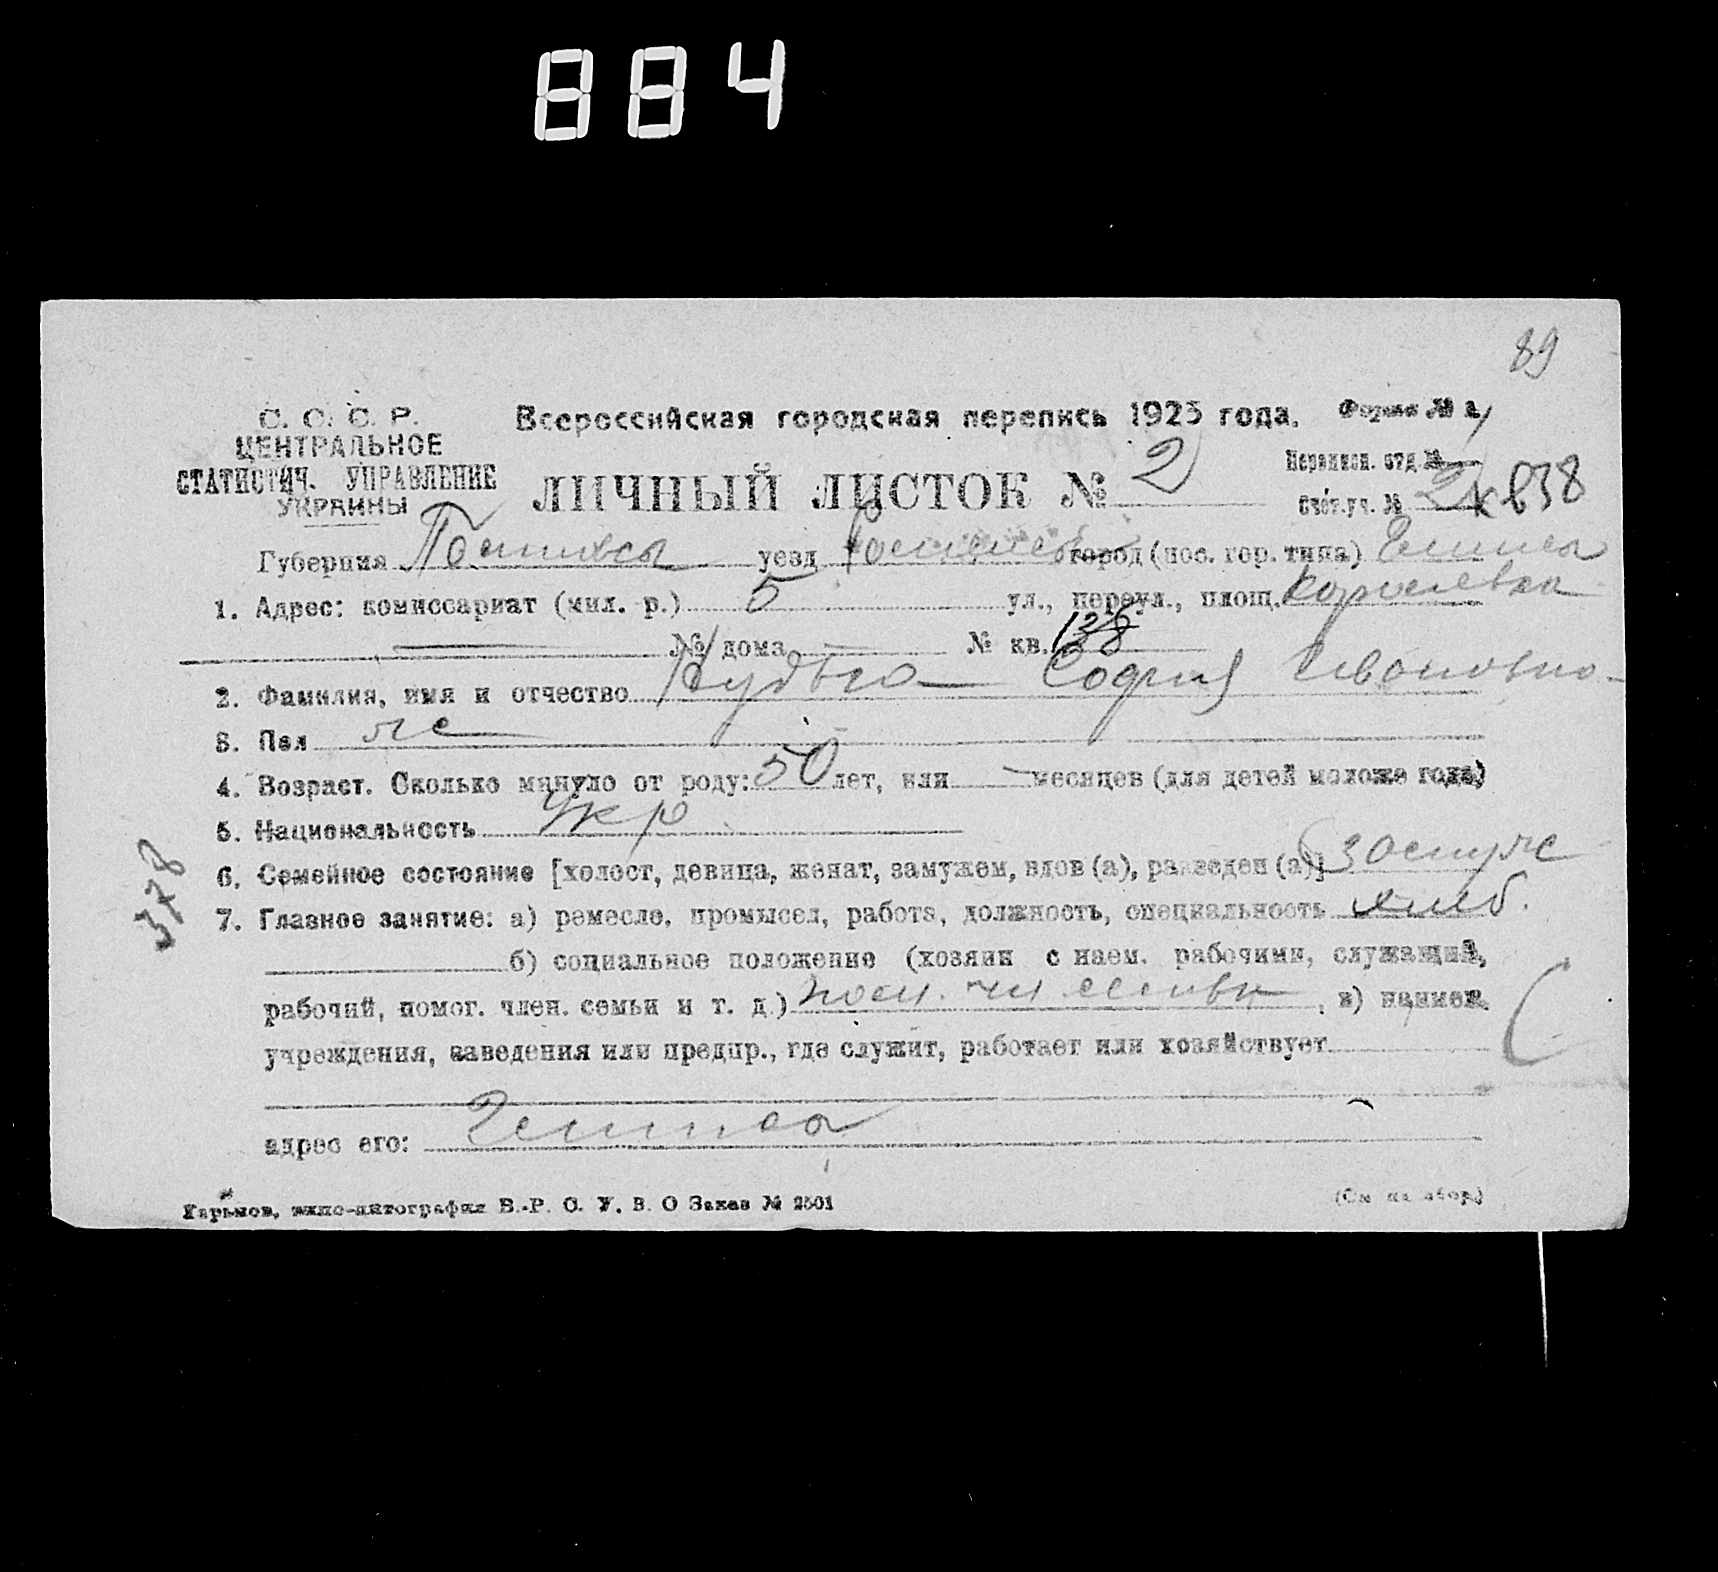 884
89
С. С. С. Р.
ЦЕНТРАЛЬНОЕ
СТАТИСТИЧ. УПРАВЛЕНИЕ
УКРАИНЫ
Всероссийская городская перепись 1923 года.
Форма № 2
ЛИЧНЫЙ ЛИСТОК № 2
Переписн. отд №
Счет.уч. № 2 838
Губерния уезд город (пос. гор. типа)
1. Адрес: комиссариат (мил. р.) 5 ул., переул., площ. Королевка
№ дома № кв. 128
2. Фамилия, имя и отчество София Ивановна
3. Пол ж
4. Возраст. Сколько минуло от роду: 50 лет, или — месяцев (для детей моложе года)
5. Национальность Укр
6. Семейное состояние [холост, девица, женат, замужем, вдов (а), разведен (а)] замуж
378
7. Главное занятие: а) ремесло, промысел, работа, должность, специальность хлеб.
б) социальное положение (хозяин с наем. рабочими, служащий,
рабочий, помог. член. семьи и т. д.) пом. чл семьи, в) наимен.
учреждения, заведения или предпр., где служит, работает или хозяйствует
адрес его:
Харьков, типо-литография В.-Р. С. У. В. О Заказ № 2501
(См на обор.)